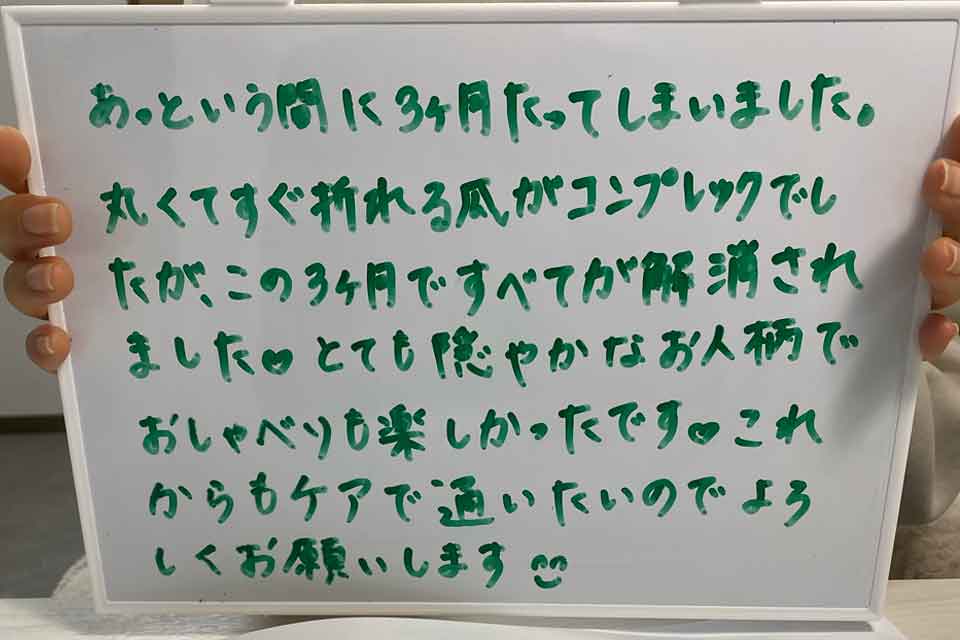 あっという間に3ヶ月たってしまいました。
丸くてすぐ折れる爪がコンプレックでし
たが、この3ヶ月ですべてが解消され
ました♥とても隠やかなお人柄で
おしゃべりも楽しかったです♥これ
からもケアで通いたいのでよろ
しくお願いします☺